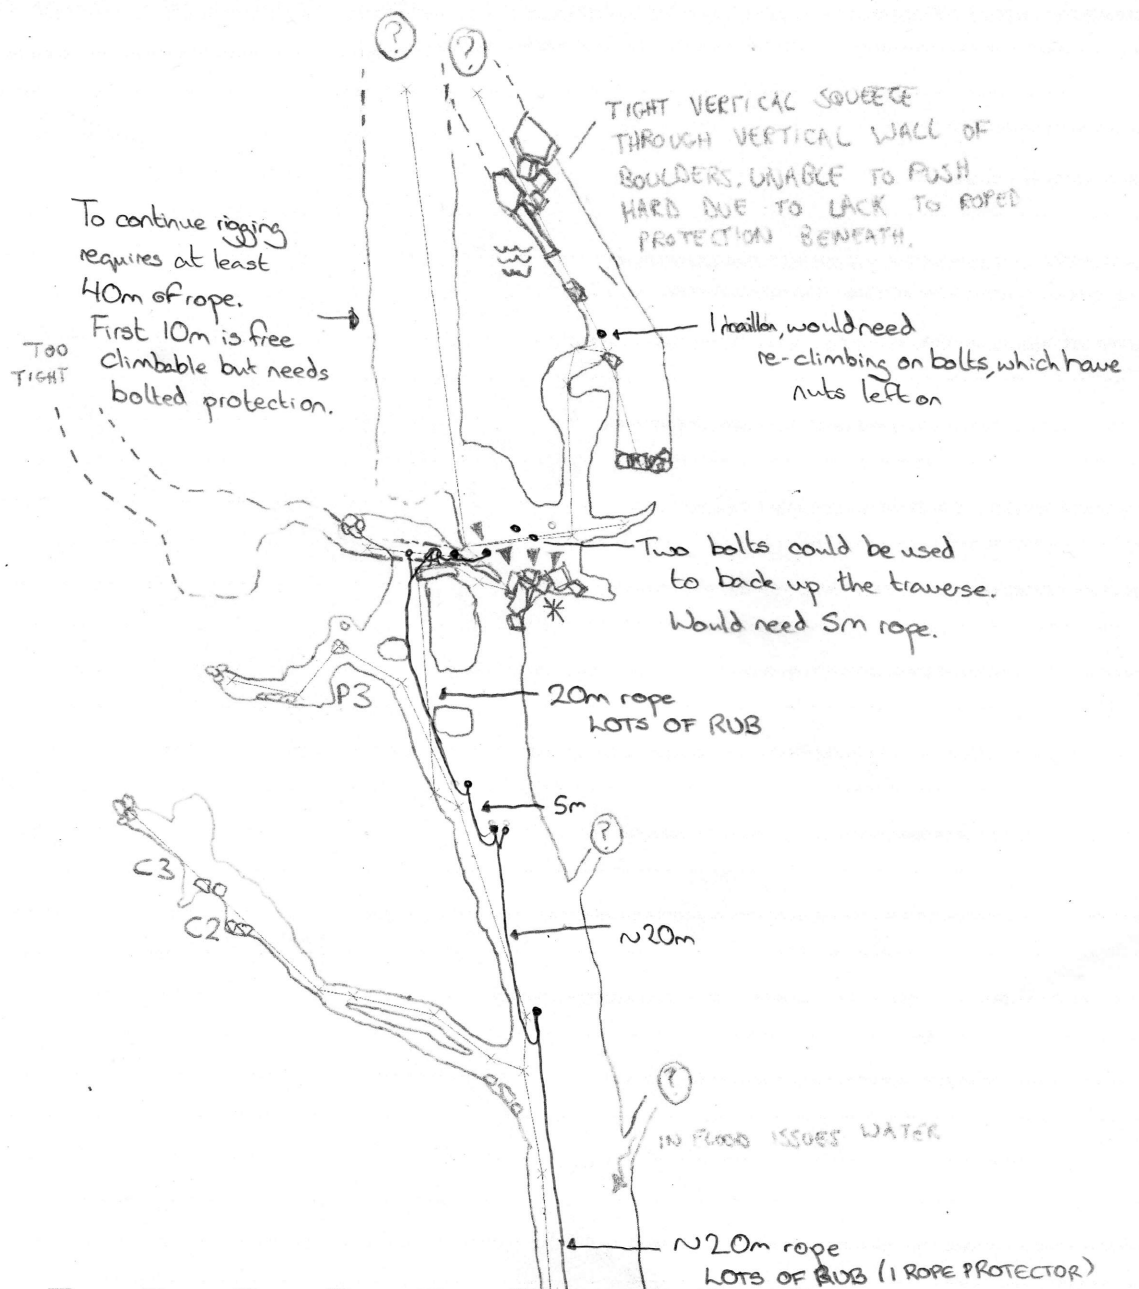 ?
?
TIGHT VERTICAL SQUEEZE
THROUGH VERTICAL WALL OF
BOULDERS. UNABLE TO PUSH
HARD DUE TO LACK TO ROPED
PROTECTION BENEATH.
To continue rigging
requires at least
40m of rope.
First 10m is free
climbable but needs
bolted protection.
TOO
TIGHT
1 maillon, would need
re-climbing on bolts, which have
nuts left on
Two bolts could be used
to back up the traverse.
Would need 5m rope.
P3
20m rope
LOTS OF RUB
5m
?
C3
C2
~20m
?
IN FLOOD ISSUES WATER
~20m rope
LOTS OF RUB (1 ROPE PROTECTOR)